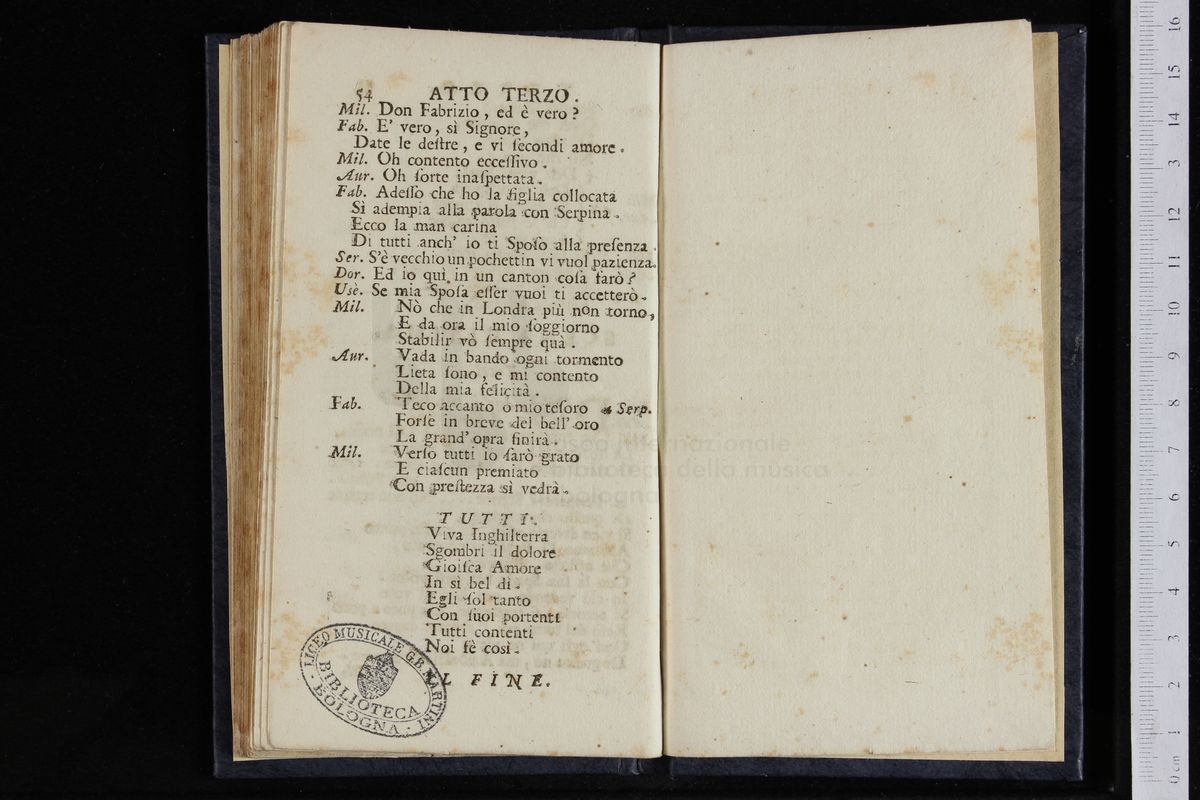 54 ATTO TERZO.
Mil. Don Fabrizio, ed è vero?
Fab. E' vero, sì Signore,
Date le deſtre, e vi ſecondi amore.
Mil. Oh contento ecceſſivo.
Aur. Oh ſorte inaſpettata.
Fab. Adeſſo che ho la figlia collocata
Sì adempia alla parola con Serpina.
Ecco la man carina
Di tutti anch' io ti Spoſo alla preſenza.
Ser. S'è vecchio un pochettin vi vuol pazienza.
Dor. Ed io quì in un canton coſa farò?
Usè. Se mia Spoſa eſſer vuoi ti accetterò.
Mil. Nò che in Londra più non torno,
E da ora il mio ſoggiorno
Stabilir vò ſempre quà.
Aur. Vada in bando ogni tormento
Lieta ſono, e mi contento
Della mia felicità.
Fab. Teco accanto o mio teſoro a Serp.
Forſe in breve del bell' oro
La grand' opra finirà.
Mil. Verſo tutti io ſarò grato
E ciaſcun premiato
Con preſtezza sì vedrà.
TUTTI.
Viva Inghilterra
Sgombri il dolore
Gioiſca Amore
In sì bel dì.
Egli ſol tanto
Con ſuoi portenti
Tutti contenti
Noi fè così.
IL FINE.
LICEO MUSICALE G.B. MARTINI
BIBLIOTECA
BOLOGNA
museo internazionale
e biblioteca della musica
di bologna
0 cm 1 2 3 4 5 6 7 8 9 10 11 12 13 14 15 16